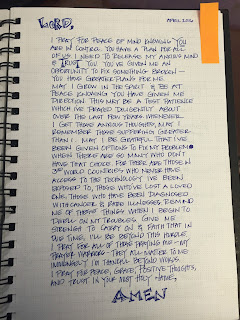 LORD,
APRIL 2016
I PRAY FOR PEACE OF MIND KNOWING YOU
ARE IN CONTROL. YOU HAVE A PLAN FOR ALL
OF US. I NEED TO RELEASE MY ANXIOUS MIND
& TRUST YOU. YOU'VE GIVEN ME AN
OPPORTUNITY TO FIX SOMETHING BROKEN—
YOU HAVE GREATER PLANS FOR ME.
MAY I GROW IN THE SPIRIT & BE AT
PEACE KNOWING YOU HAVE GIVEN ME
DIRECTION. THIS MAY BE A TEST PATIENCE
WHICH I'VE PRAYED DILIGENTLY ABOUT
OVER THE LAST FEW YEARS. WHENEVER
I GET THOSE ANXIOUS THOUGHTS, MAY I
REMEMBER THOSE SUFFERING GREATER
THAN I. MAY I BE GRATEFUL THAT I'VE
BEEN GIVEN OPTIONS TO FIX MY PROBLEM
WHEN THERE ARE SO MANY WHO DON'T
HAVE THAT CHOICE. FOR THERE ARE THOSE IN
3RD WORLD COUNTRIES WHO NEVER HAVE
ACCESS TO THE TECHNOLOGY I'VE BEEN
EXPOSED TO, THOSE WHO'VE LOST A LOVED
ONE, THOSE WHO HAVE BEEN DIAGNOSED
WITH CANCER & RARE ILLNESSES. REMIND
ME OF THESE THINGS WHEN I BEGIN TO
DWELL ON MY TROUBLES. GIVE ME
STRENGTH TO CARRY ON & FAITH THAT IN
DUE TIME, I'LL BE BEYOND THIS HURDLE.
I PRAY FOR ALL OF THOSE PRAYING FOR ME—MY
PRAYER WARRIORS—THEY ALL MATTER TO ME
IMMENSELY. I'M THANKFUL BEYOND WORDS.
I PRAY FOR PEACE, GRACE, POSITIVE THOUGHTS,
AND TRUST IN YOUR MOST HOLY NAME,
AMEN